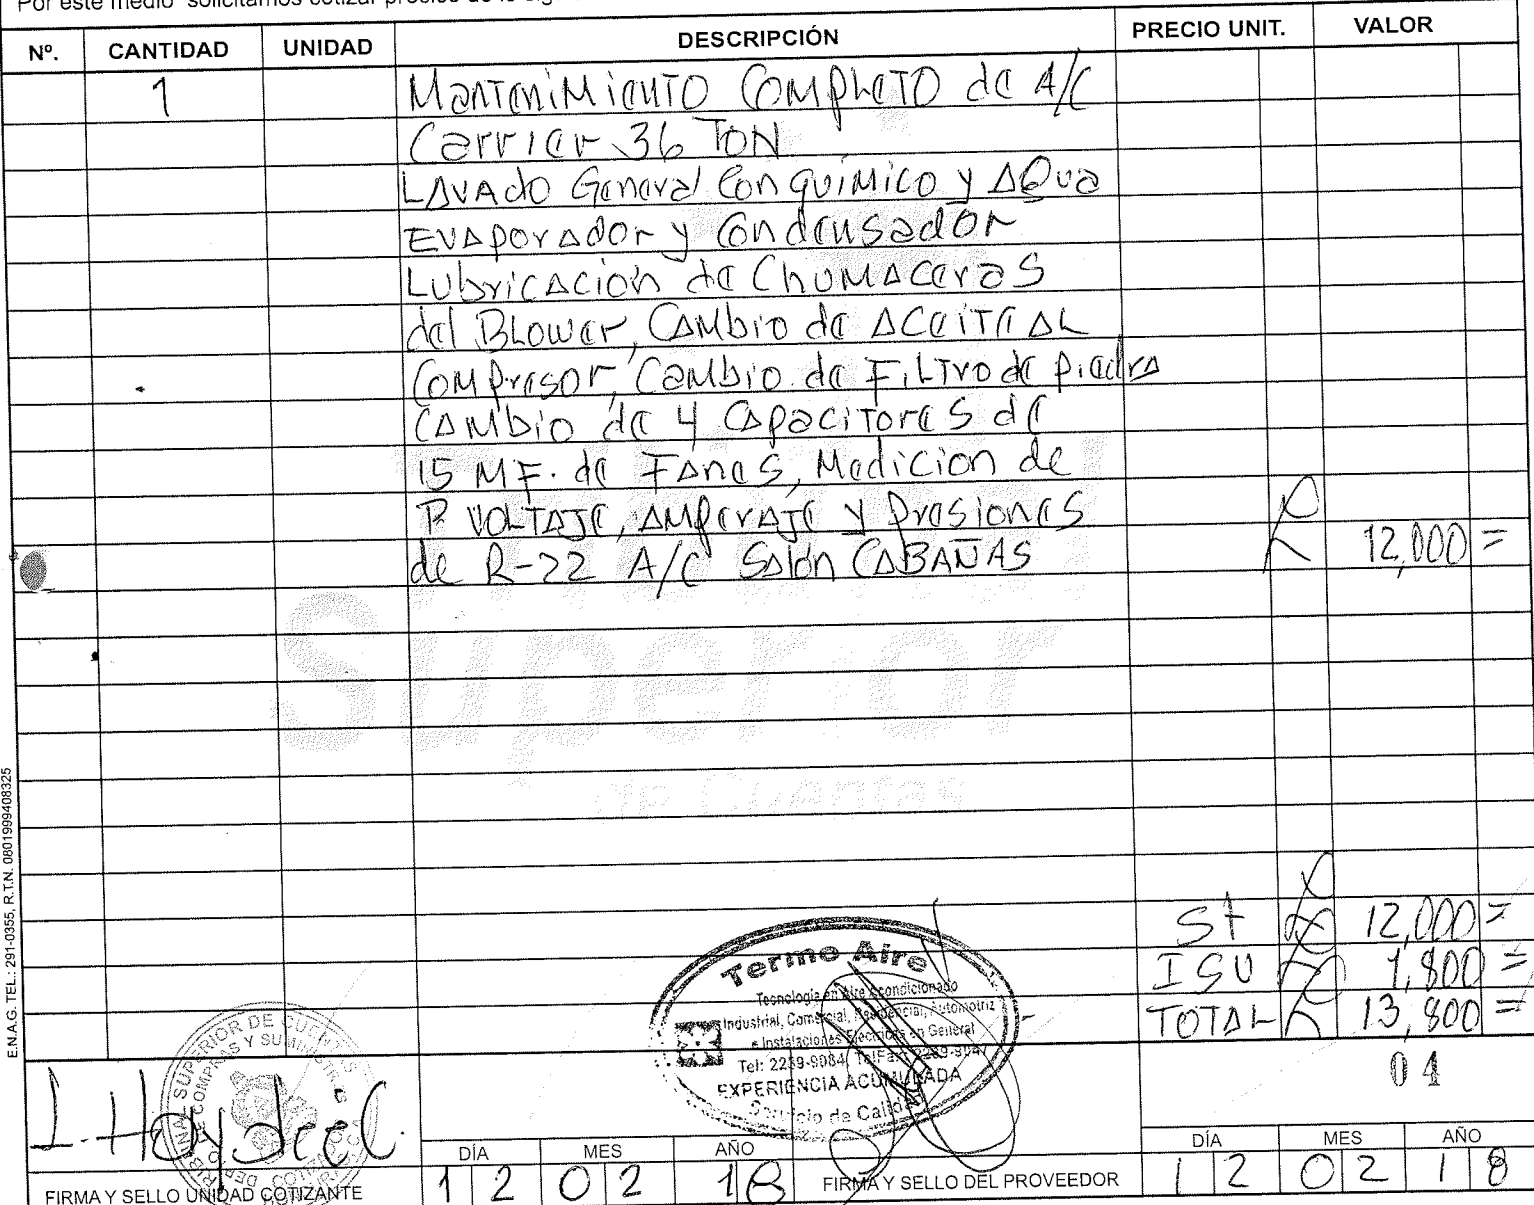 Por este medio solicitamos cotizar precios de lo
Nº. CANTIDAD UNIDAD DESCRIPCIÓN PRECIO UNIT. VALOR
1 Mantenimiento Completo de A/C
Carrier 36 TON
Lavado General con químico y Agua
Evaporador y Condensador
Lubricación de Chumaceras
del Blower, Cambio de Aceite al
Compresor, Cambio de Filtro de piedra
Cambio de 4 Capacitores de
15 MF. de Fanes, Medicion de
P. Voltaje, Amperaje y Presiones
de R-22 A/C Salón CABAÑAS L 12,000=
Superior
de Cuentas
St L 12,000=
ISV L 1,800=
TOTAL L 13,800=
04
E.N.A.G. TEL.: 291-0355, R.T.N. 08019999408325
Termo Aire
Tecnología en Aire Acondicionado
Industrial, Comercial, Residencial, Automotriz
e Instalaciones Electricas en General
Tel: 2239-9084, TelFax: 2239-9047
EXPERIENCIA ACUMULADA
Servicio de Calidad
SUPERIOR DE CUENTAS
COMPRAS Y SUMINISTROS
DÍA MES AÑO DÍA MES AÑO
FIRMA Y SELLO UNIDAD COTIZANTE 12 02 18 FIRMA Y SELLO DEL PROVEEDOR 12 02 18